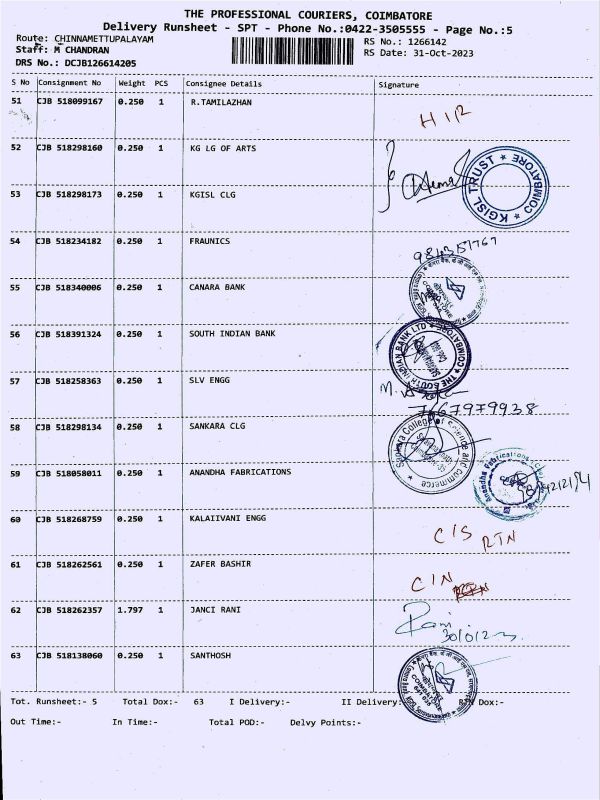 THE PROFESSIONAL COURIERS, COIMBATORE
Delivery Runsheet - SPT - Phone No.:0422-3505555 - Page No.:5
Route: CHINNAMETTUPALAYAM
Staff: M CHANDRAN
DRS No.: DCJB126614205
RS No.: 1266142
RS Date: 31-Oct-2023
S No Consignment No Weight PCS Consignee Details Signature
51 CJB 518099167 0.250 1 R.TAMILAZHAN
52 CJB 518298160 0.250 1 KG LG OF ARTS
KGISL TRUST ★ COIMBATORE ★
53 CJB 518298173 0.250 1 KGISL CLG
54 CJB 518234182 0.250 1 FRAUNICS
9843151767
55 CJB 518340006 0.250 1 CANARA BANK
COIMBATORE
56 CJB 518391324 0.250 1 SOUTH INDIAN BANK
★ THE SOUTH INDIAN BANK LTD ★ COIMBATORE
57 CJB 518258363 0.250 1 SLV ENGG
7667979938
58 CJB 518298134 0.250 1 SANKARA CLG
Sankara College of Science and Commerce
59 CJB 518058011 0.250 1 ANANDHA FABRICATIONS
Anandha Fabrications
60 CJB 518268759 0.250 1 KALAIIVANI ENGG
C/S RTN
61 CJB 518262561 0.250 1 ZAFER BASHIR
C/N
62 CJB 518262357 1.797 1 JANCI RANI
Rani
63 CJB 518138060 0.250 1 SANTHOSH
COIMBATORE
Tot. Runsheet:- 5 Total Dox:- 63 I Delivery:- II Delivery:- Dox:-
Out Time:- In Time:- Total POD:- Delvy Points:-